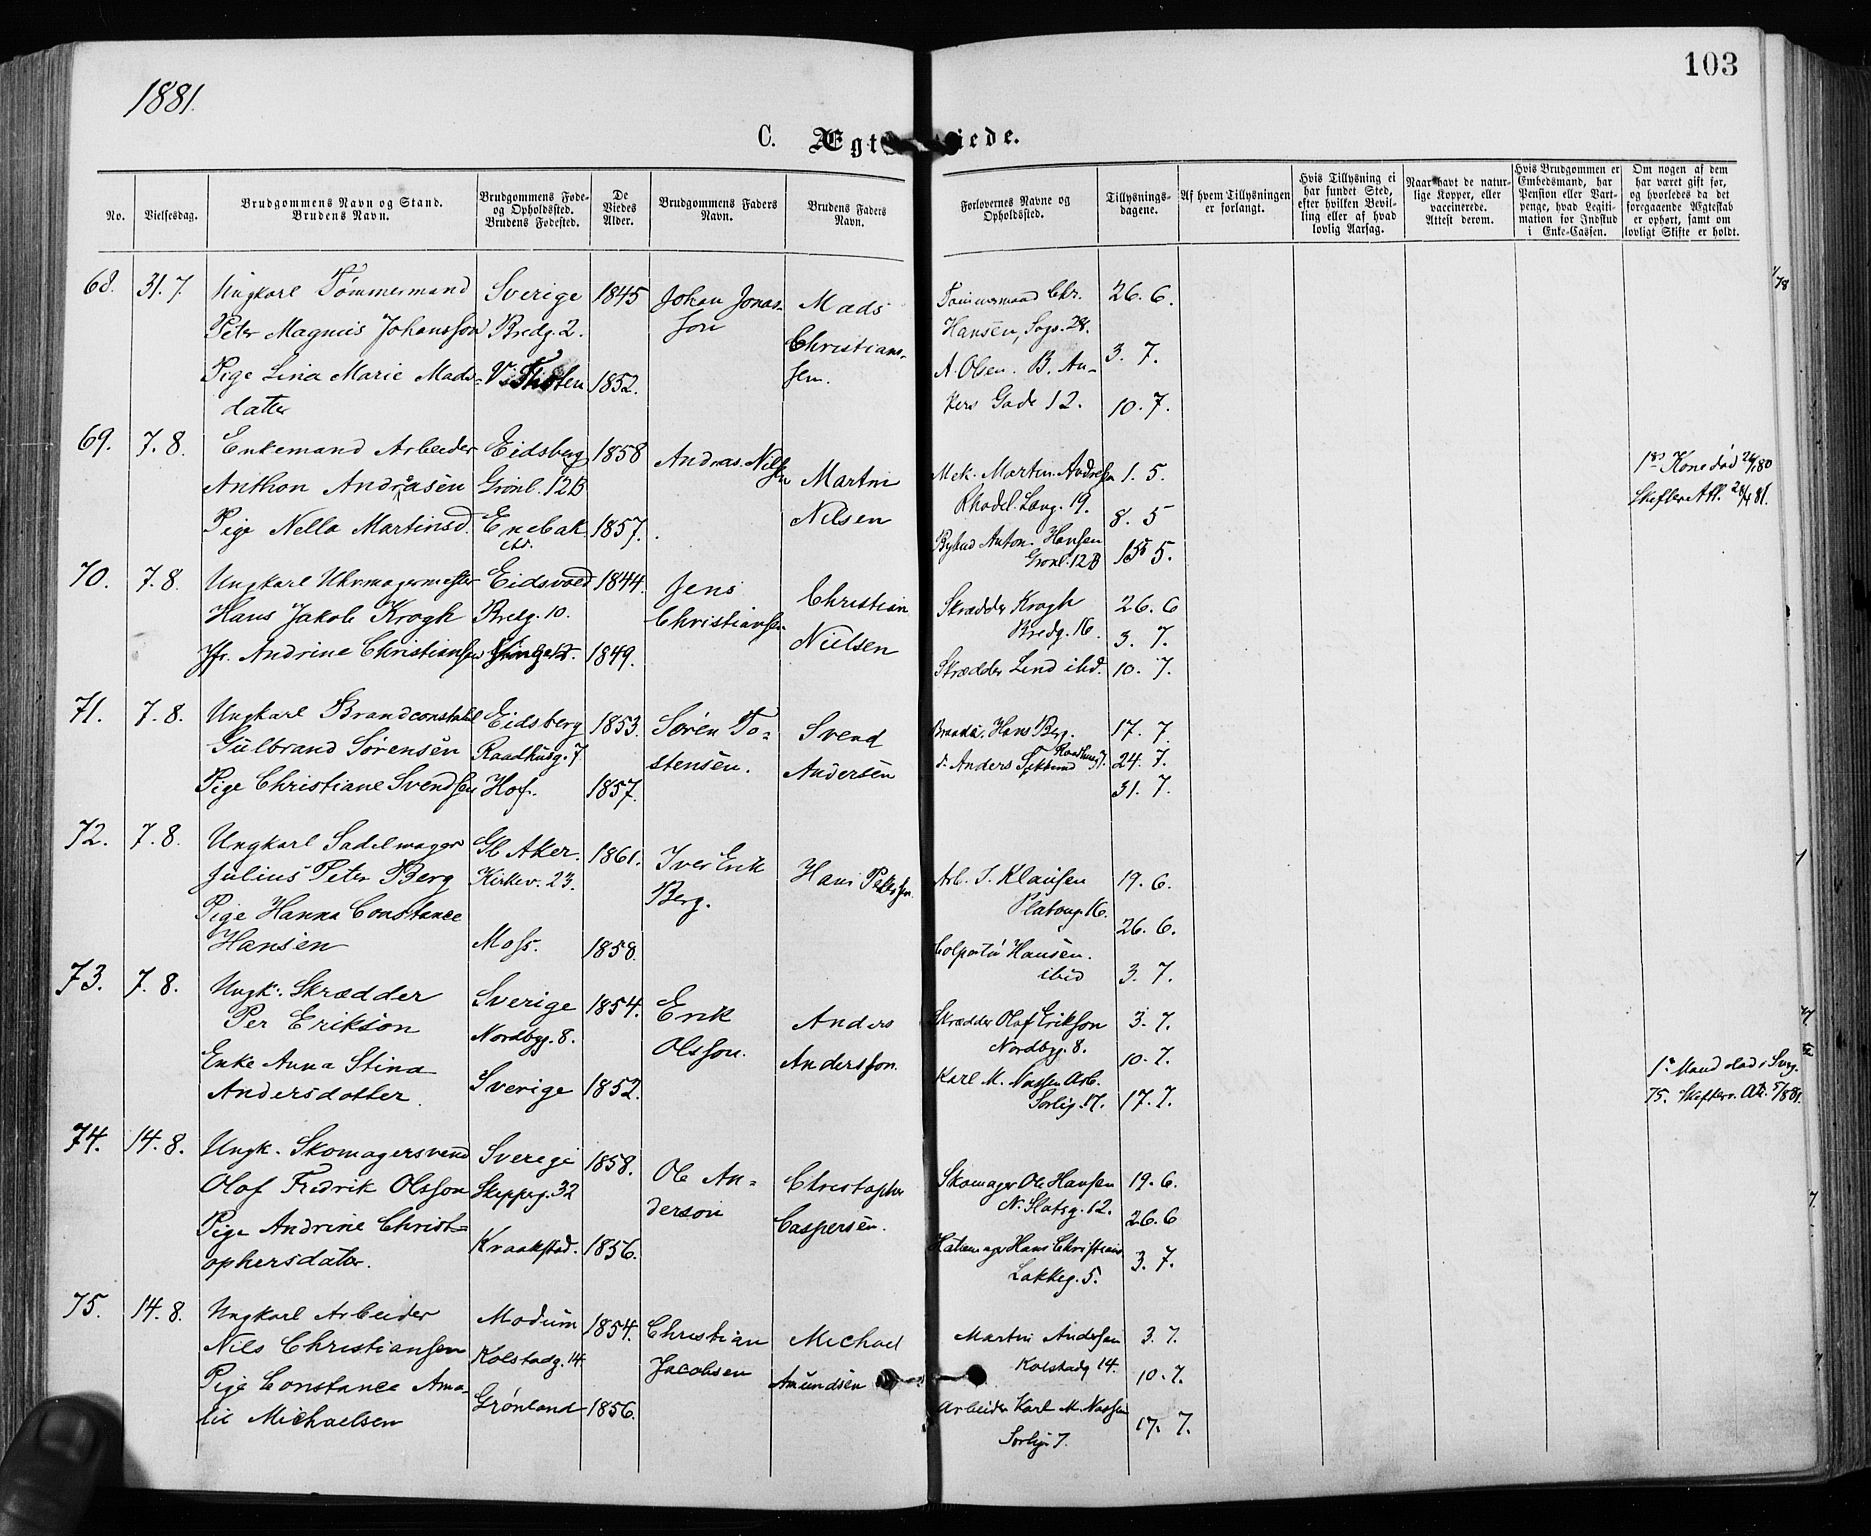 103
1881.
C. Ægt iede.
No.
Vielsesdag.
Brudgommens Navn og Stand.
Brudens Navn.
Brudgommens Føde-
og Opholdssted.
Brudens Fødested.
De
Viedes
Alder.
Brudgommens Faders
Navn.
Brudens Faders
Navn.
Forlovernes Navne og
Opholdssted.
Tillysnings-
dagene.
Af hvem Tillysningen
er forlangt.
Hvis Tillysning ei
har fundet Sted,
efter hvilken Bevil-
ling eller af hvad
lovlig Aarsag.
Naar havt de natur-
lige Kopper, eller
vaccinerede.
Attest derom.
Hvis Brudgommen er
Embedsmand, har
Pension eller Vart-
penge, hvad Legiti-
mation for Indskud
i Enke-Cassen.
Om nogen af dem
har været gift før,
og hvorledes da det
foregaaende Ægteskab
er ophørt, samt om
lovligt Skifte er holdt.
68. 31. 7.
Ungkarl Tømmermand
Peter Magnus Johansson
Pige Lina Marie Mads-
datter
Sverige
Bredg. 2.
V. Thoten
1845
1852.
Johan Jonas-
son
Mads
Christian-
sen.
Tømmermand Chr.
Hansen, Sogs. 28.
A. Olsen. B. An-
kers Gade 12.
26. 6.
3. 7.
10. 7.
69. 7. 8.
Enkemand Arbeider
Anthon Andrasen
Pige Nella Martinsd.
Eidsberg
Grønl. 12B
Enebak
1858
1857.
Andras. Nilsen
Martin
Nilsen
Mek. Martin Andresen
Lang. 19.
Bybud Anton Hansen
Grønl. 12B
1. 5.
8. 5
15 5.
1ste Kone død 80
Skifte Att. 81.
70. 7. 8.
Ungkarl Uhrmagermester
Hans Jakob Krogh
Jfr. Andrine Christiansen
Eidsvold
Bredg. 10.
1844.
1849.
Jens
Christiansen
Christian
Nielsen
Skrædder Krogh
Bredg. 16.
Skrædder Lind ibid.
26. 6
3. 7.
10. 7.
71. 7. 8.
Ungkarl Brandconstabel
Gulbrand Sørensen
Pige Christiane Svendsen
Eidsberg
Raadhusg. 7
Hof.
1853.
1857.
Søren To-
stensen.
Svend
Andersen
Hans Berg.
d. Anders Raadhusg 7.
17. 7.
24. 7.
31. 7.
72. 7. 8.
Ungkarl Sadelmager
Julius Peter Berg
Pige Hanna Constance
Hansen
Gl. Aker.
Kirkev. 23.
Moss.
1861.
1858.
Iver Erik
Berg.
Hans Pettersen.
Arb. J. Klausen
Platoug. 16.
Colportør Hansen.
ibid
19. 6.
26. 6.
3. 7.
73. 7. 8.
Ungk. Skrædder
Per Erikson
Enke Anna Stina
Andersdotter
Sverige
Nordbyg. 8.
Sverige
1854.
1852.
Erik
Olsson.
Anders
Andersson.
Skrædder Olof Erikson
Nordbyg. 8.
Karl M. Nassen Arb.
Sorlig. 17.
3. 7.
10. 7.
17. 7.
1ste Mand død i Sverig.
75. Skifter. Att. 81.
74. 14. 8.
Ungk. Skomagersvend
Olof Fredrik Olsson
Pige Andrine Christ-
ophersdater.
Sverige
Skipperg. 32
Kraakstad.
1858.
1856.
Ole An-
derson
Christopher
Caspersen.
Skomager Ole Hansen
N. Slotsg. 12.
Hattemager Hans Christians
Lakkeg. 5.
19. 6.
26. 6
3. 7.
75. 14. 8.
Ungkarl Arbeider
Nils Christiansen
Pige Constance Ama-
lie Michaelsen
Modum
Kolstadg. 14
Grønland
1854.
1856.
Christian
Jacobsen
Michael
Amundsen
Martin Andersen
Kolstadg 14.
Arbeider Karl M. Nassen
Sorlig. 7.
3. 7.
10. 7.
17. 7.